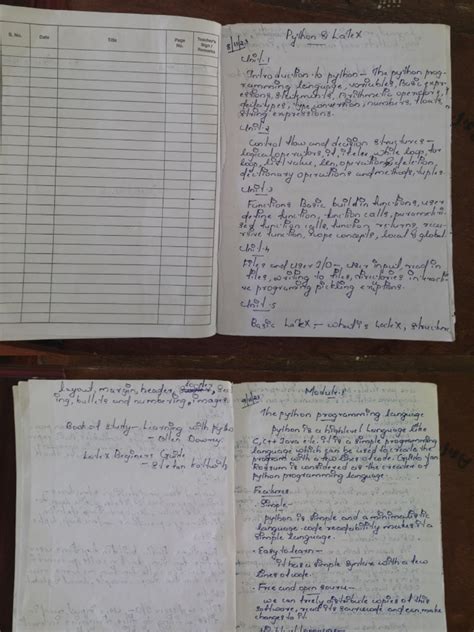 S. No.
Date
Title
Page No.
Teacher's Sign / Remarks
Python & LaTeX
Unit-1
Introduction to python - The python prog-
ramming language, variables, Basic expr-
essions, statements, Arithmetic operators,
datatypes, type conversion, numbers, floats,
string expressions.
Unit-2
Control flow and decision structures -
logical operators, if, if else, while loop, for
loop, list value, len, operations, deletion,
dictionary operations and methods, tuples.
Unit-3
Functions Basic build in functions, user
define function, function calls, parametri-
sed function calls, function returns, recur
sive function, scope concepts, local & global
Unit-4
Files and User I/O - user input, read in
files, writing to files, directories interacti
ve programing pickling
Unit-5
Basic LaTeX - what is LaTeX, structure
layout, margin, header, footer,
ing, bullets and numbering, images
Book of study - Learning with pytho
- Allen Downey
LaTeX Beginners Guide
- Stefan
Module-1
The python programming language
python is a highlevel language like
C, C++ Java etc. it is a simple programming
language which can be used to create the
program with a two lines of code. Guido Van
Rossum is considered as the creator of
python programming language.
Features
- Simple -
python is simple and a minimalistic
language. code readability makes it a
simple language.
- Easy to Learn -
it has a simple syntax with a few
lines of code.
- Free and open source -
we can freely distribute copies of this
software, read its source code and can make
changes to it.